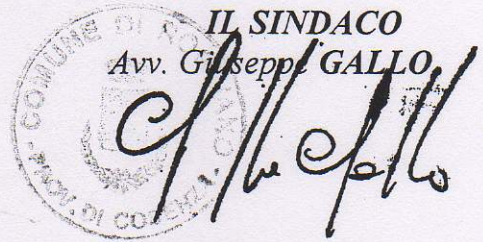 IL SINDACO
Avv. Giuseppe GALLO
COMUNE DI
DI COSENZA